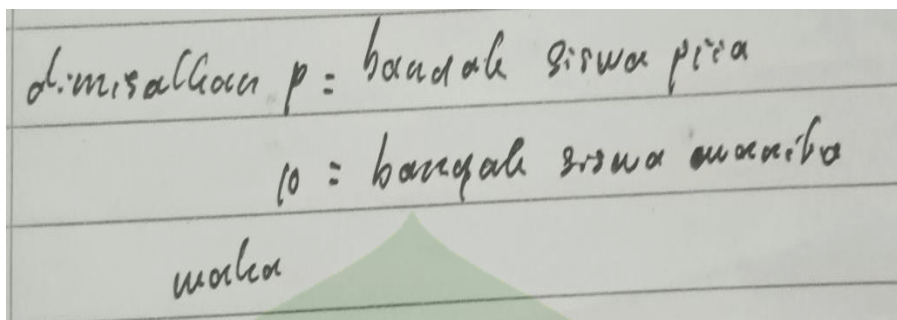 dimisalkan p = banyak siswa pria
w = banyak siswa wanita
maka